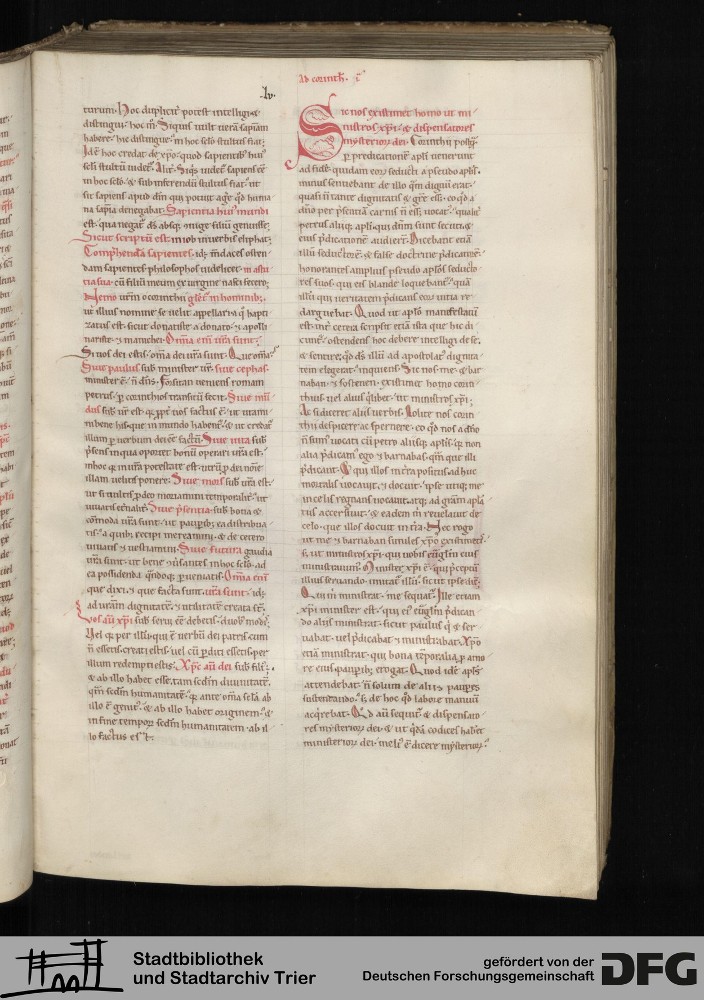 Ad corinth. i
lv.
turum. Hoc dupliciter potest intelligi &
distingui. hoc m̄. Siquis uult uera sapiam
habere. hic distingue. in hoc sc̄lo stultus fiat.
Idē hoc credat de xp̄o. quod sapientib; hui'
sc̄li stultū uidet. Alit̄. Siq̄s uidet sapiens ee
in hoc sc̄lo. & sub inferendū stultus fiat. ut
sit sapiens apud dm̄
na sapia denegabat. Sapientia hui' mundi
est. qua negat ds̄ absq; coniuge filiū genuisse.
Sicut scriptū est. in iob in uerbis eliphaz.
Comp̄hendā sapientes. id; m̄daces osten
dam sapientes philosophos uidelicet. in astu
tia sua. cū filiū meum ex uirgine nasci fecero.
Nemo
ut illius nomine se uelit appellari a q̄ bapti
zatus est. sicut donatiste a donato. & apolli
nariste. & manichei. Omīa enī ur̄a sunt.
Si uos dei estis. omīa dei ur̄a sunt. Que omīa.
Siue paulus sub minister ur̄. siue cephas.
minister ē. n̄ dn̄s. Forsitan ueniens romam
petrus. p corinthios transitū fecit. Siue mū
dus sub ur̄ est.
nibene hisq; in mundo habent̄. & ut cred
illam p uerbum dei ee factū. Siue uita sub
p̄sens in qua oportet bonū operari ur̄a est.
inhoc q̄ in ur̄a potestate est. utrū p dei noīe
illam uelitis ponere. Siue mors sub ur̄a est.
ut si uultis p deo moriamini temporaliter. ut
uiuatis et̄nalit̄. Siue p̄sentia. sub bona &
cōmoda ur̄a sunt. ut paupib; ea distribua
tis. a quib; recipi mereamini. & de cetero
uiuatis & uestiamini. Siue futura gaudia
ur̄a sunt. ut bene
ca possidenda
que dixi. & que facta sunt. ur̄a sunt. id;
ad ur̄am dignitatē. & utilitatē creata st̄.
Vos aū xp̄i. sub serui ee debetis. duob; modis.
Vel q̄ per illū qui ē uerbū dei patris cum
n̄ essetis creati estis. uel cū p̄diti essetis per
illum redempti estis. Xp̄c aū dei sub fili'.
& ab illo habet esse. tam sedm diuinitatē.
qm̄ sedm humanitatē. q̄ ante om̄ia sc̄la ab
illo ē genit'. & ab illo habet originem. &
in fine tempor̄ sedm humanitatem. ab il
lo factus est.
Sic nos existimet homo ut mi
nistros xp̄i. & dispensatores
mysterior̄ dei. Corinthii postq̄
p predicationē apl̄i uenerunt
ad fidē. quidam eor̄ seducti a pseudo apl̄is.
minus sentiebant de illo qm̄ dignū erat.
quasi n̄ tante dignitatis & gr̄e ess&. eo qd a
dn̄o per p̄sentia carnis n̄ ess& uocat'. qualit̄
petrus aliiq; apl̄i. qui dn̄m sunt secuti. &
eius p̄dicationē audiert̄. Dicebant etiā
illū seductorē. & false doctrine p̄dicatorē.
honorantes amplius pseudo apl̄os seducto
res suos. qui eis blande loquebant̄. quā
illū qui ueritatem p̄dicans eor̄ uitia re
darguebat. Quod ut apl̄o manifestatū
est. int̄ cetera scripsit etiā ista que hic di
cunt̄. ostendens hoc debere intelligi de se.
& sentire. qd ds̄ illū ad apostolatꝰ dignita
tem elegerat. inquiens. Sic nos. me. & bar
naban. & sosthenen. existimet homo corin
thius uel alius q̄libet. ut ministros xp̄i.
Ac si diceret aliis uerbis. Nolite nos corin
thii despicere. ac spernere. eo qd nos a dn̄o
n̄ sum' uocati cū petro aliisq; apl̄is. q̄ non
alia p̄dicam' ego & barnabas. qm̄ que illi
p̄dicant. Qui illos in t̄ra positus adhuc
mortalis uocauit. & docuit. ipse utiq; me
in celis regnans uocauit. atq; ad gr̄am apl̄a
tus accersiuit. & eadem m̄ reuelauit de
celo. que illos docuit in t̄ra. Nec rogo
ut me & barnaban similes xp̄o existimetis.
s; ut ministros xp̄i. qui nobis eūglm̄ eius
ministramus. Minister xp̄i ē. qui p̄ceptū
illius seruando. imitat̄ illū. sicut ipse dic̄.
Qui m̄ ministrat. me sequat̄. Ille etiam
xp̄i minister est. qui ei' eūglm̄ p̄dican
do aliis ministrat. sicut paulus q̄ & ser
uabat. uel p̄dicabat & ministrabat. Xp̄o
etiā ministrat. qui bona temporalia p amo
re eius paupib; erogat. Quod idē apl̄s
attendebat. n̄ solum de aliis paup̄es
sustentando. s; de hoc qd labore manuū
acq̄rebat. Qd aū sequit̄. & dispensato
res mysterior̄ dei. & ut q̄dā codices habent
ministerior̄ dei. meli' ē dicere mysterior̄.
Stadtbibliothek
und Stadtarchiv Trier
gefördert von der
Deutschen Forschungsgemeinschaft
DFG